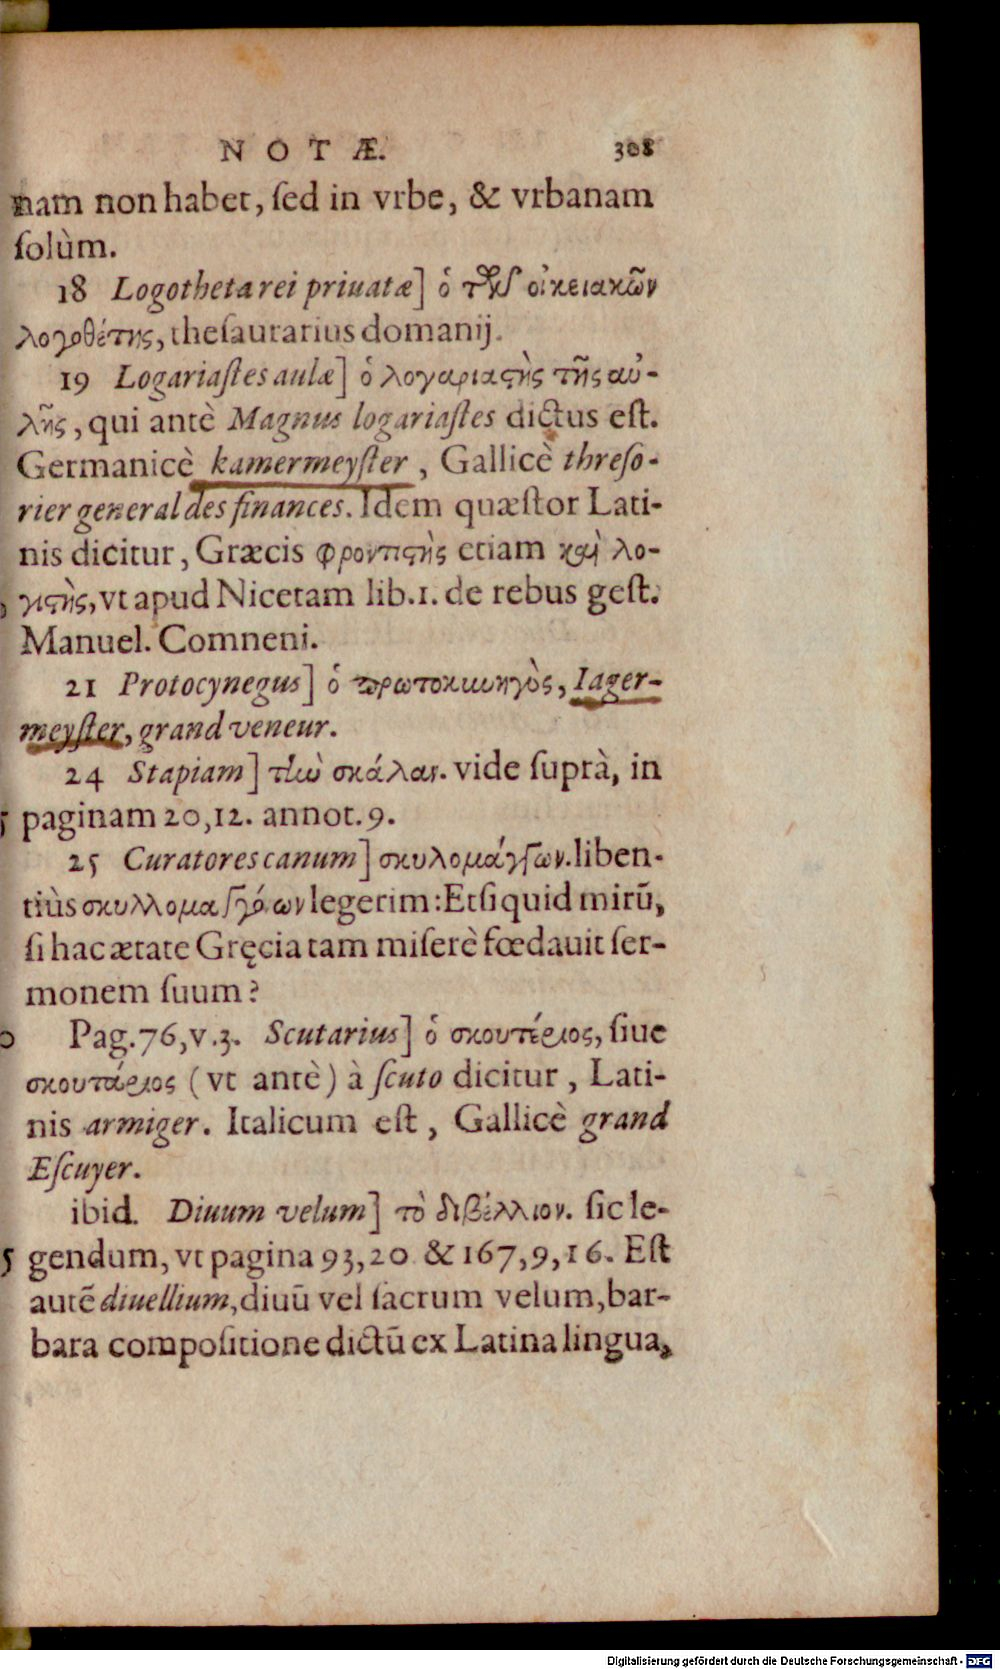 NOTÆ. 308
nam non habet, ſed in vrbe, & vrbanam
ſolùm.
18 Logotheta rei priuatæ] ὁ τῶν οἰκειακῶν
λογοθέτης, theſaurarius domanij.
19 Logariaſtes aulæ] ὁ λογαριαϛὴς τῆς αὐ-
λῆς, qui antè Magnus logariaſtes dictus eſt.
Germanicè kamermeyſter, Gallicè threſo-
rier general des finances. Idem quæſtor Lati-
nis dicitur, Græcis φροντιϛὴς etiam καὶ λο-
γιϛὴς, vt apud Nicetam lib.1. de rebus geſt.
Manuel. Comneni.
21 Protocynegus] ὁ πρωτοκυνηγὸς, Iager-
meyſter, grand veneur.
24 Stapiam] τὴν σκάλαν. vide ſuprà, in
paginam 20,12. annot. 9.
25 Curatores canum] σκυλομάγγων. liben-
tiùs legerim: Etſi quid mirū,
ſi hac ætate Gręcia tam miſerè fœdauit ſer-
monem ſuum?
Pag. 76, v.3. Scutarius] ὁ σκουτέριος, ſiue
σκουτάριος (vt antè) à ſcuto dicitur, Lati-
nis armiger. Italicum eſt, Gallicè grand
Eſcuyer.
ibid. Diuum velum] τὸ διβέλλιον. ſic le-
gendum, vt pagina 93,20 & 167,9,16. Eſt
autē diuellium, diuū vel ſacrum velum, bar-
bara compoſitione dictū ex Latina lingua,
Digitalisierung gefördert durch die Deutsche Forschungsgemeinschaft - DFG